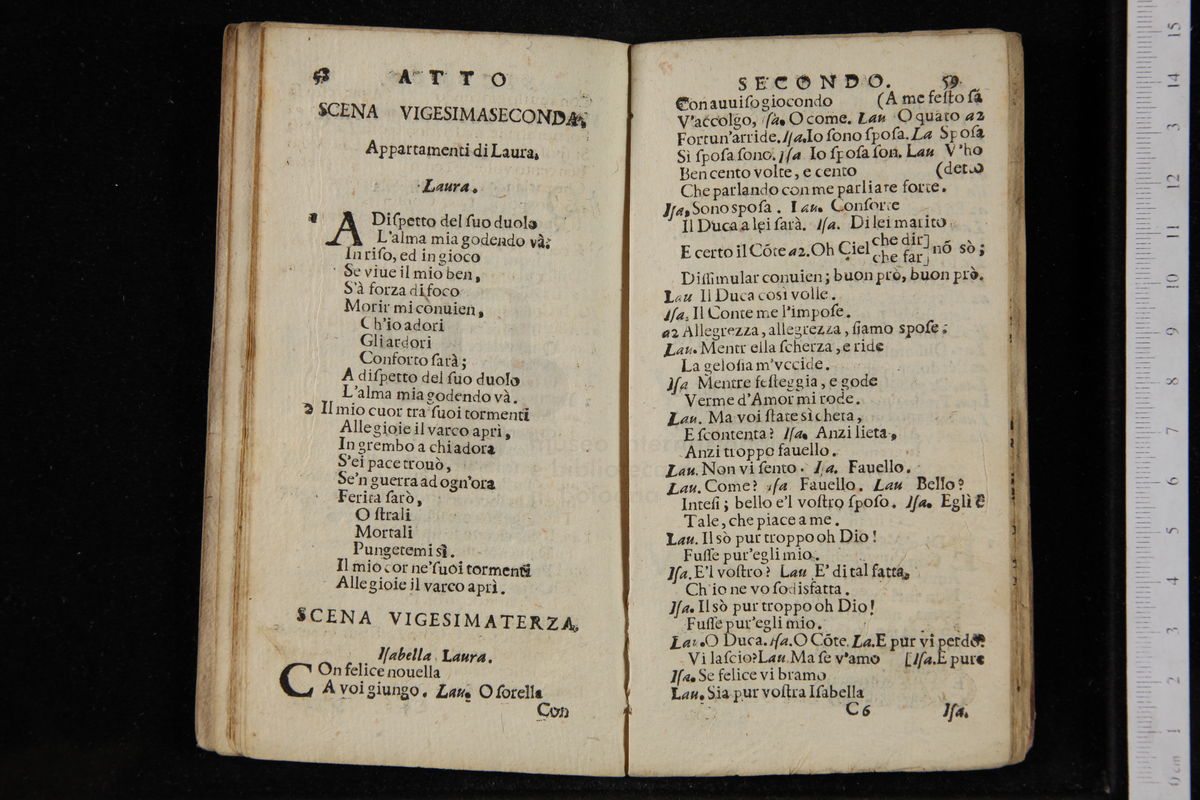 58 ATTO
SCENA VIGESIMASECONDA.
Appartamenti di Laura.
Laura.
1 A Diſpetto del ſuo duolo
L'alma mia godendo và:
In riſo, ed in gioco
Se viue il mio ben,
S'à forza di foco
Morir mi conuien,
Ch'io adori
Gli ardori
Conforto ſarà;
A diſpetto del ſuo duolo
L'alma mia godendo và.
2 Il mio cuor tra ſuoi tormenti
Alle gioie il varco aprì,
In grembo a chi adora
S'ei pace trouò,
Se'n guerra ad ogn'ora
Ferita ſarò,
O ſtrali
Mortali
Pungetemi sì.
Il mio cor ne'ſuoi tormenti
Alle gioie il varco aprì.
SCENA VIGESIMATERZA.
Iſabella, Laura.
COn felice nouella
A voi giungo. Lau. O ſorella
Con
SECONDO. 59
Con auuiſo giocondo (A me feſto ſá
V'accolgo, Iſa. O come. Lau O quāto a2
Fortun'arride. Iſa. Io ſono ſpoſa. La Spoſa
Sì ſpoſa ſono. Iſa Io ſpoſa ſon. Lau V'ho
Ben cento volte, e cento (detto
Che parlando con me parliate forte.
Iſa. Sono ſpoſa. Lau. Conſorte
Il Duca a lei ſarà. Iſa. Di lei marito
E certo il Cõte a2. Oh Ciel che dir] nõ sò;
che far]
Diſſimular conuien; buon prò, buon prò.
Lau Il Duca così volle.
Iſa. Il Conte me l'impoſe.
a2 Allegrezza, allegrezza, ſiamo ſpoſe;
Lau. Mentr ella ſcherza, e ride
La geloſia m'vccide.
Iſa Mentre feſteggia, e gode
Verme d'Amor mi rode.
Lau. Ma voi ſtate sì cheta,
E ſcontenta? Iſa. Anzi lieta,
Anzi troppo fauello.
Lau. Non vi ſento. Iſa. Fauello.
Lau. Come? Iſa Fauello. Lau Bello?
Inteſi; bello e'l voſtro ſpoſo. Iſa. Egli è
Tale, che piace a me.
Lau. Il sò pur troppo oh Dio!
Fuſſe pur'egli mio.
Iſa. E'l voſtro? Lau E' di tal fatta,
Ch'io ne vo ſodisfatta.
Iſa. Il sò pur troppo oh Dio!
Fuſſe pur'egli mio.
Lau. O Duca. Iſa. O Cõte. La. E pur vi perdo?
Vi laſcio? Lau. Ma ſe v'amo [Iſa. E pure
Iſa. Se felice vi bramo
Lau. Sia pur voſtra Iſabella
C6 Iſa.